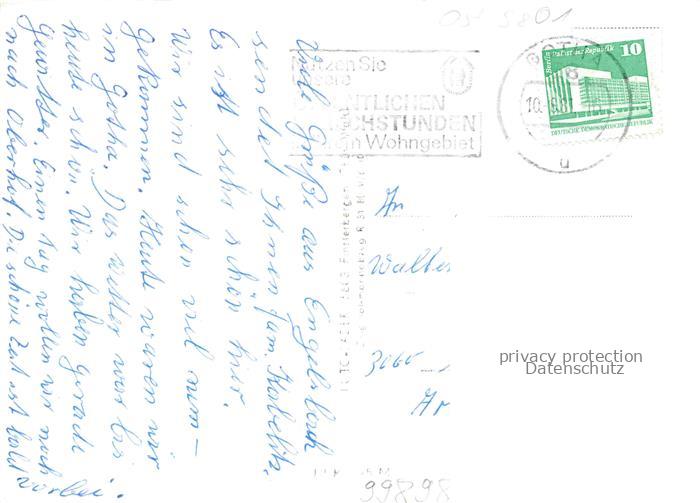 Viele Grüße aus Engelsbach
sendet Ihnen Fam.
Es ist sehr schön hier.
Wir sind schon viel rum-
gekommen. Heute waren wir
in Gotha. Das Wetter war bis
heute schön. Wir haben gerade
Gewitter. Einen Tag wollen wir noch
nach Oberhof. Die schöne Zeit ist bald
vorbei.
05 5801
Nutzen Sie
unsere
NTLICHEN
CHSTUNDEN
im Wohngebiet
GOTHA
10.
81
u
Berlin, Palast der Republik
10
DEUTSCHE DEMOKRATISCHE REPUBLIK
An
Walter
3060
privacy protection
Datenschutz
99898